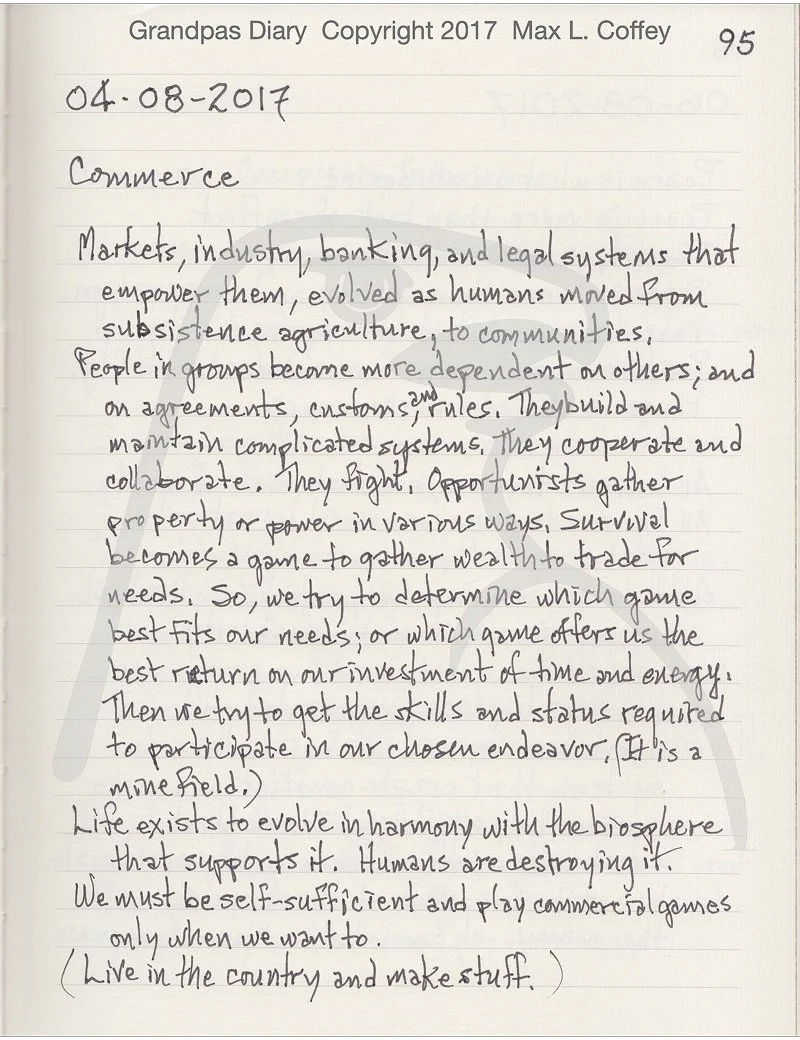 Grandpas Diary Copyright 2017 Max L. Coffey
95
04-08-2017
Commerce
Markets, industry, banking, and legal systems that
empower them, evolved as humans moved from
subsistence agriculture, to communities.
People in groups become more dependent on others; and
on agreements, customs, and rules. They build and
maintain complicated systems. They cooperate and
collaborate. They fight. Opportunists gather
property or power in various ways. Survival
becomes a game to gather wealth to trade for
needs. So, we try to determine which game
best fits our needs; or which game offers us the
best return on our investment of time and energy.
Then we try to get the skills and status required
to participate in our chosen endeavor. (It is a
mine field.)
Life exists to evolve in harmony with the biosphere
that supports it. Humans are destroying it.
We must be self-sufficient and play commercial games
only when we want to.
(Live in the country and make stuff.)